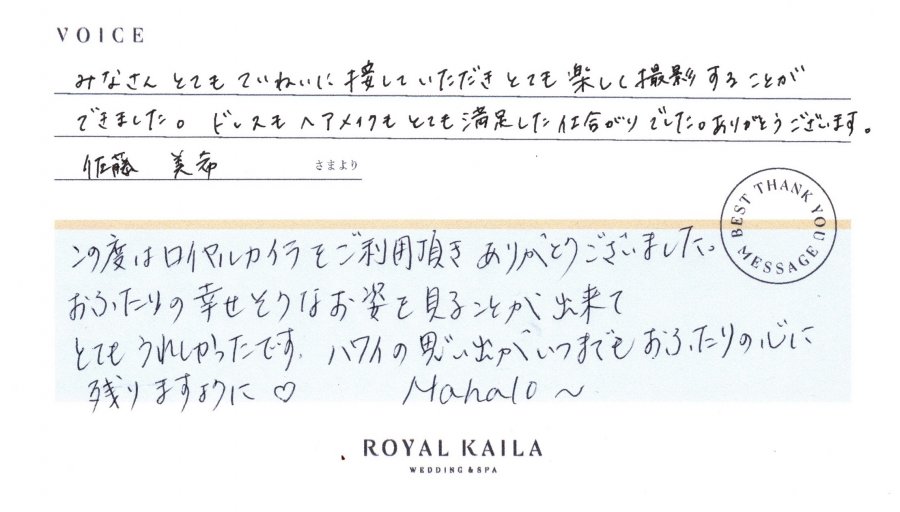 VOICE
みなさんとてもていねいに接していただきとても楽しく撮影することが
できました。ドレスもヘアメイクもとても満足した仕合がりでした。ありがとうございます。
佐藤 美希 さまより
BEST THANK YOU MESSAGE
この度はロイヤルカイラをご利用頂きありがとうございました。
おふたりの幸せそうなお姿を見ることが出来て
とてもうれしかったです。ハワイの思い出がいつまでもおふたりの心に
残りますように♡ Mahalo~
ROYAL KAILA
WEDDING & SPA